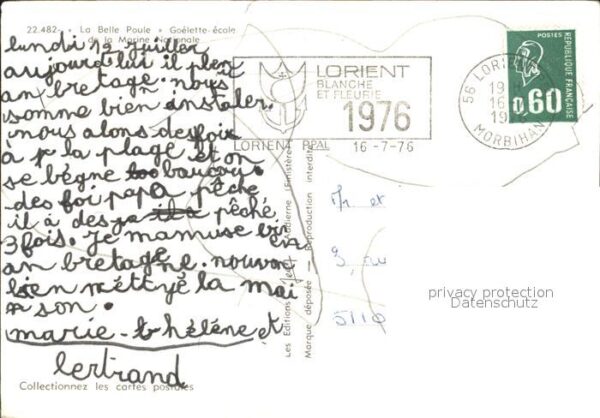 22.482 - "La Belle Poule" Goélette-école
de la Marine Nationale
lundi 12 juillet
aujourdui il pleu
an bretage. nous
somme bien instaler.
nous alons des foix
à la plage et on
se bégne baucoup.
des foi papa pêche
il à des pêché
3 fois. je mamuse bien
an bretagne. nouvon
bien néttyé la mai
son.
marie-hélène et
bertrand
Collectionnez les cartes postales
LORIENT
BLANCHE
ET FLEURIE
1976
LORIENT PPAL 16-7-76
56 LORIENT
19
16
19
MORBIHAN
POSTES
0,60
REPUBLIQUE FRANÇAISE
Les Editions
Marque déposée - Reproduction interdite
Mr et
5110
privacy protection
Datenschutz